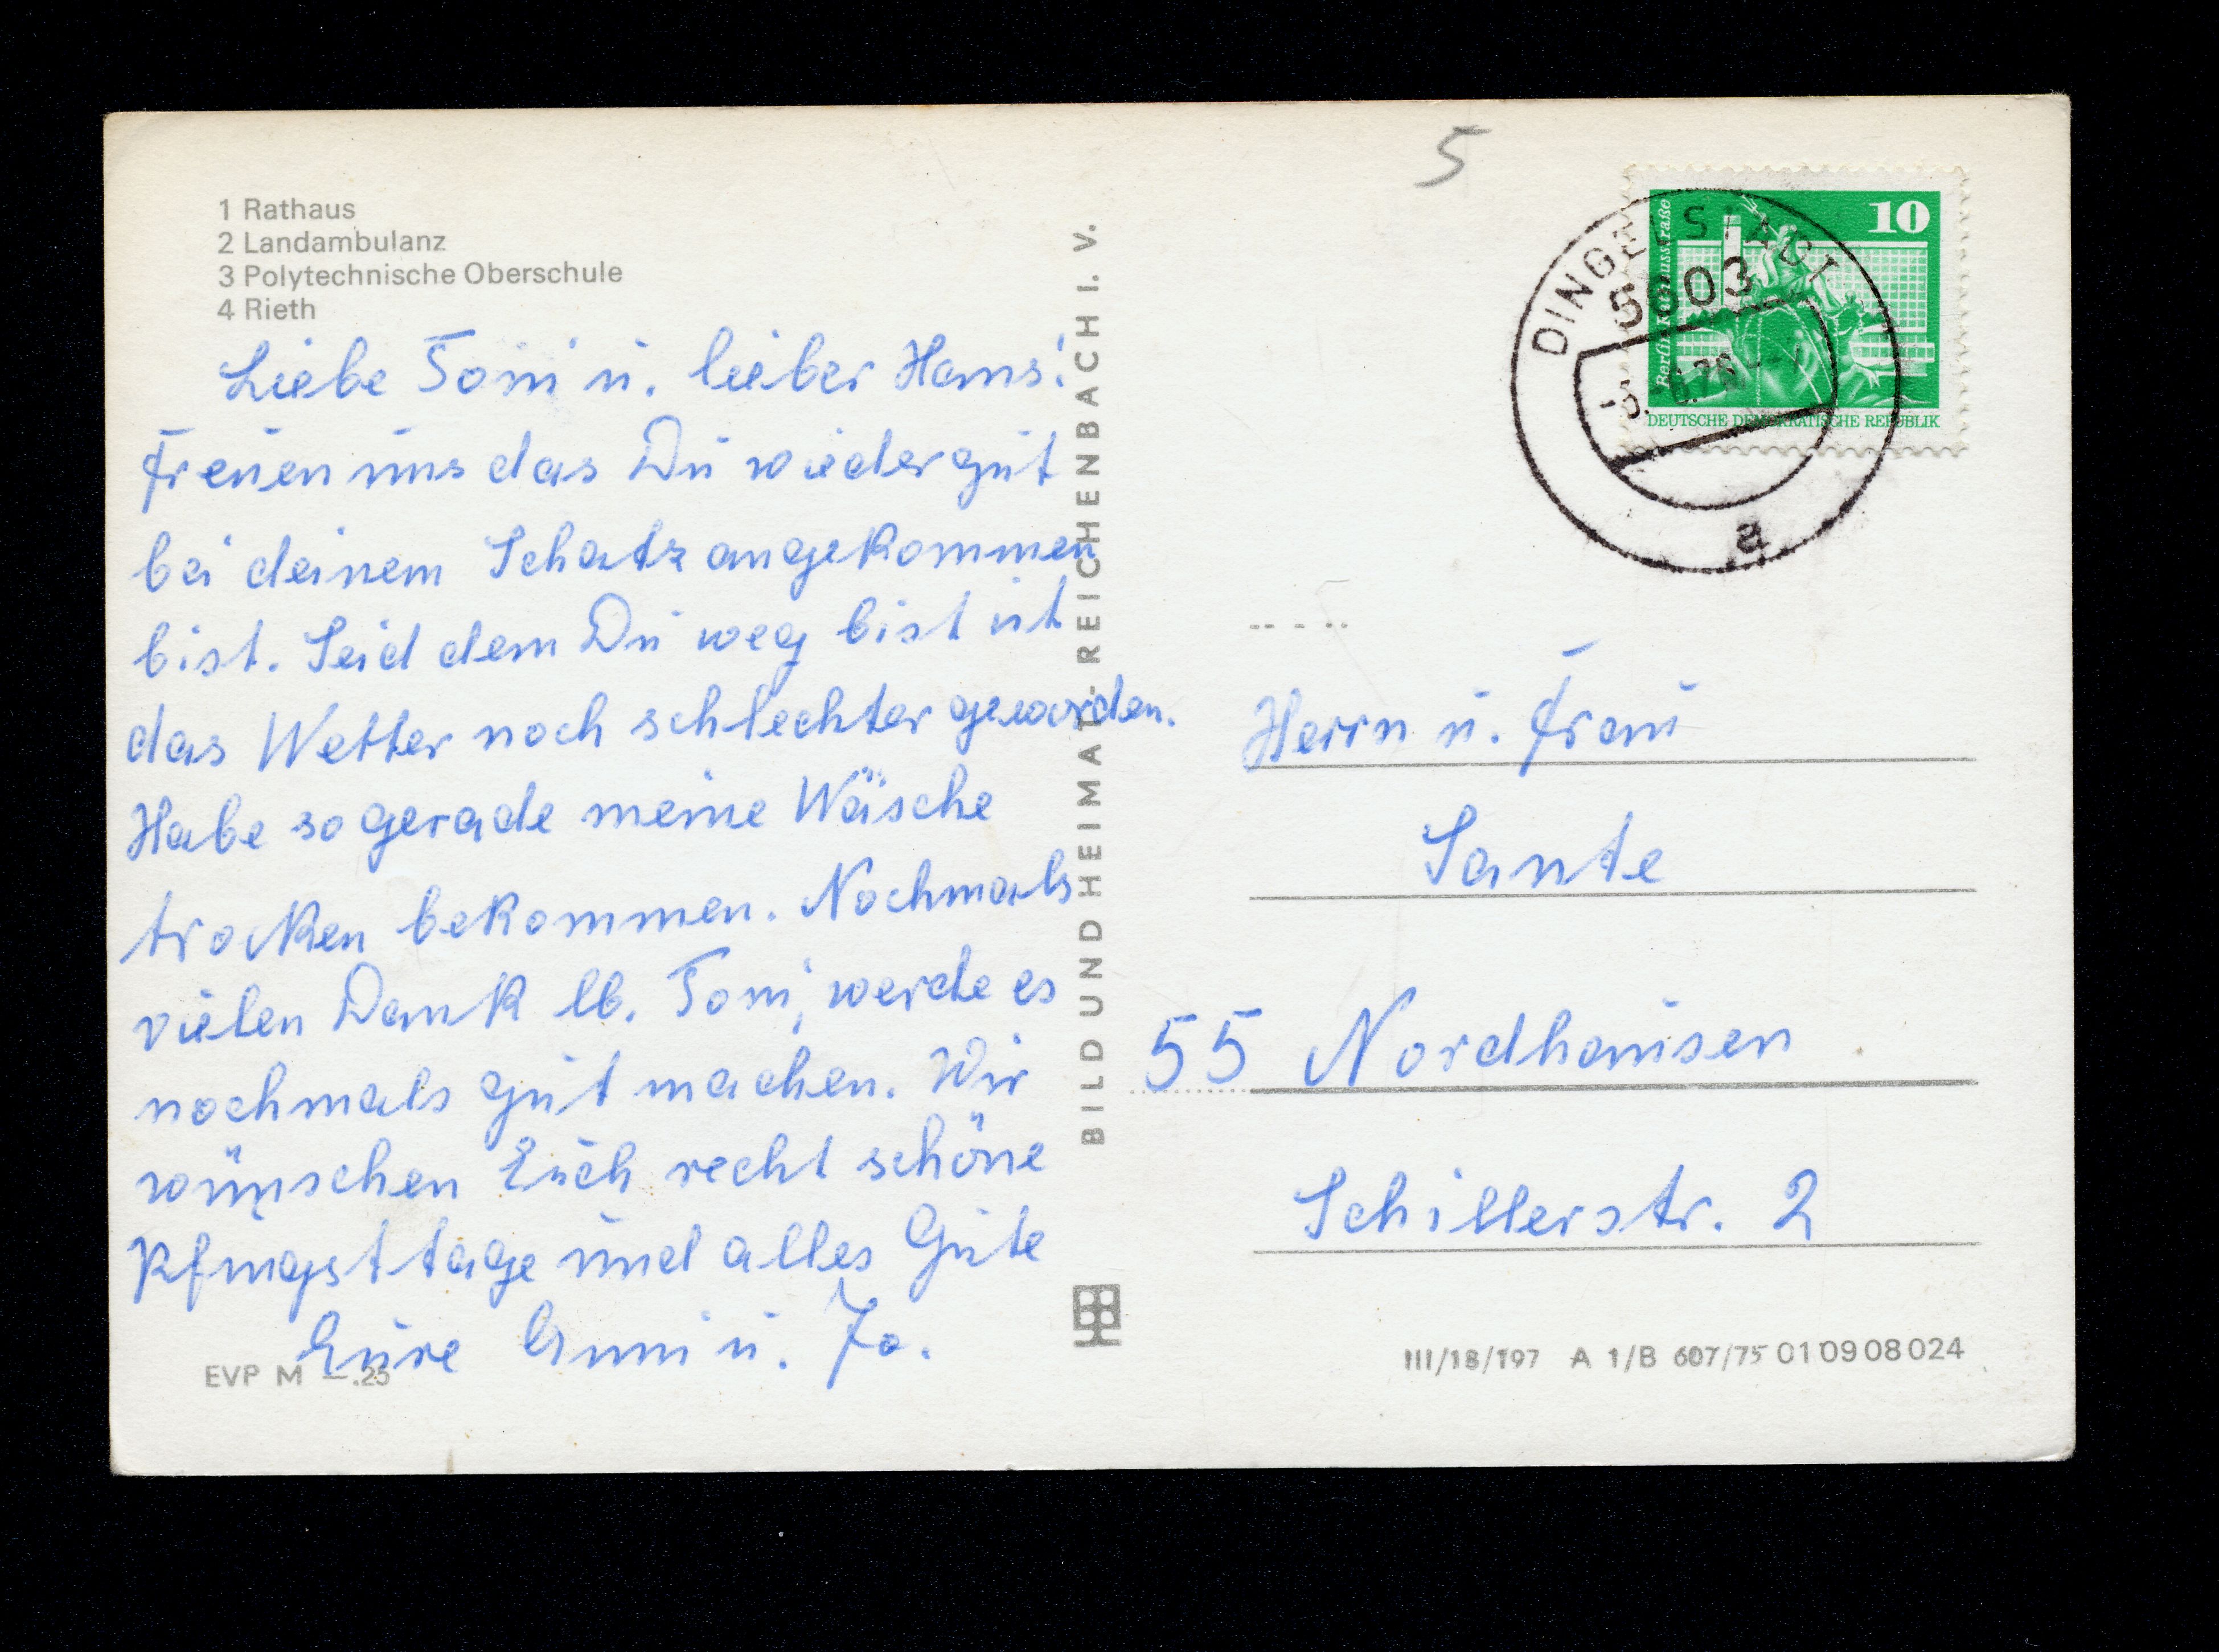 1 Rathaus
2 Landambulanz
3 Polytechnische Oberschule
4 Rieth
Liebe Toni u. lieber Hans!
Freuen uns das Du wieder gut
bei deinem Schatz angekommen
bist. Seid dem Du weg bist ist
das Wetter noch schlechter geworden.
Habe so gerade meine Wäsche
trocken bekommen. Nochmals
vielen Dank lb. Toni, werde es
nochmals gut machen. Wir
wünschen Euch recht schöne
Pfingsttage und alles Gute
Eure Anni u. Jo.
EVP M –.25
BILD UND HEIMAT · REICHENBACH I. V.
5
10
Berlin
DEUTSCHE DEMOKRATISCHE REPUBLIK
DINGELSTÄDT
5603
a
Herrn u. Frau
Sante
55 Nordhausen
Schillerstr. 2
III/18/197 A 1/B 607/75 01 09 08 024